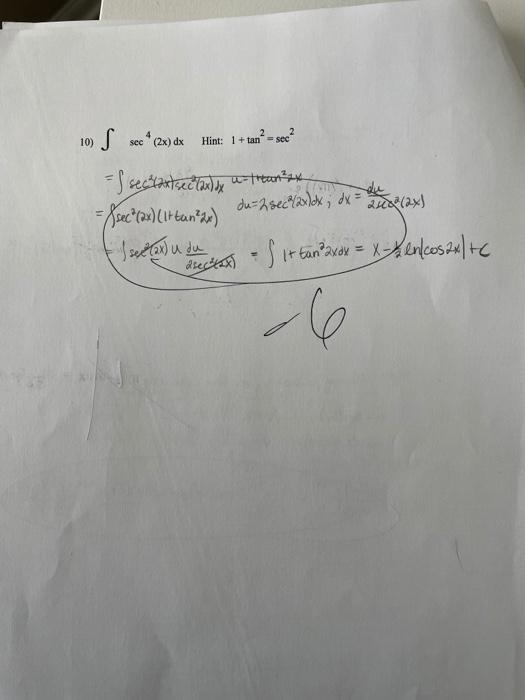 10) ∫ sec⁴ (2x) dx Hint: 1 + tan² = sec²
= ∫ sec²(2x) sec²(2x) dx u = 1+tan²2x
= ∫ sec²(2x) (1+tan²2x) du = 2sec²(2x)dx ; dx = du/2sec²(2x)
= ∫ sec²(2x) u du/2sec²(2x) = ∫ 1+tan²2xdx = x - ½ ln|cos2x| + C
-6